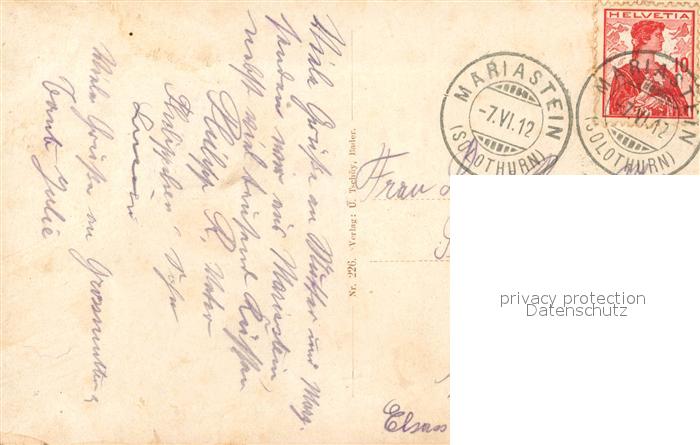 Viele Grüße an Mutter und Marg.
senden wir aus Mariastein,
nebst viel tausend Küssen
Philipp R. Vater
Philippchen, Sohn
Viele Grüße an Grossmutter
Tante Julie
Nr. 226. Verlag: U. Tschöy, Bader.
HELVETIA
10
MARIASTEIN
-7.VI.12
(SOLOTHURN)
MARIASTEIN
-7.VI.12
(SOLOTHURN)
Frau
Elsass
privacy protection
Datenschutz